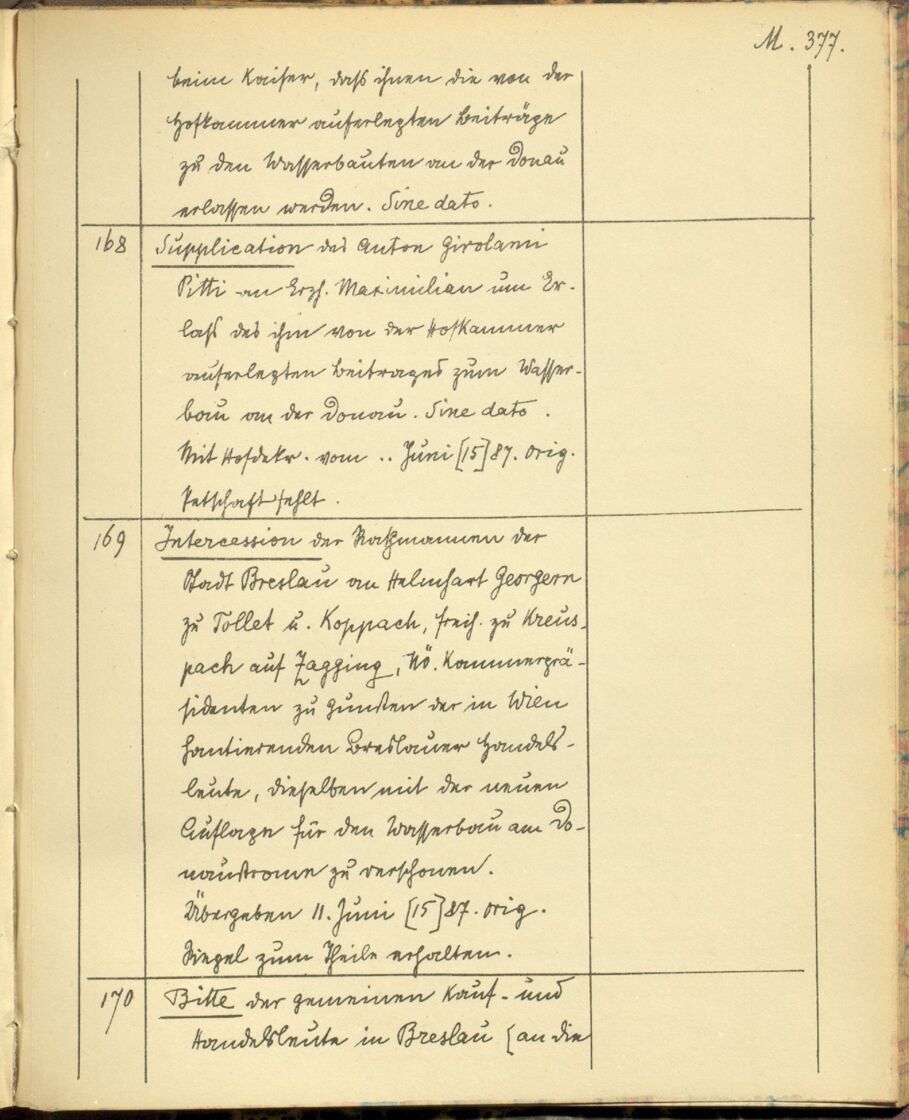 M. 377.
beim Kaiser, dass ihnen die von der
Hofkammer auferlegten Beiträge
zu den Wasserbauten an der Donau
erlassen werden. Sine dato.
168 Supplication des Anton Girolami
Pitti an Erzh. Maximilian um Er-
lass des ihm von der Hofkammer
auferlegten Beitrages zum Wasser-
bau an der Donau. Sine dato.
Mit Hofdekr. vom .. Juni [15]87. Orig.
Petschaft fehlt.
169 Intercession der Rathmannen der
Stadt Breslau an Helmhart Georgern
zu Tollet u. Koppach, Freih. zu Kreus-
pach auf Zagging, NÖ. Kammerprä-
sidenten zu Gunsten der in Wien
hantierenden Breslauer Handels-
leute, dieselben mit der neuen
Auflage für den Wasserbau am Do-
naustrome zu verschonen.
Übergeben 11. Juni [15]87. Orig.
Siegel zum Theile erhalten.
170 Bitte der gemeinen Kauf- und
Handelsleute in Breslau [an die